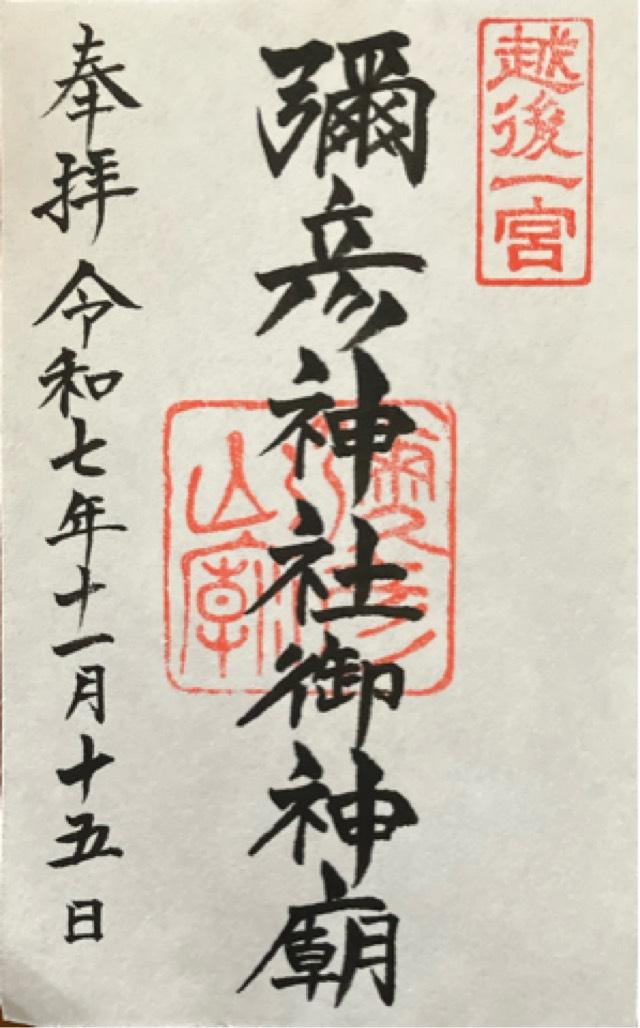 越後一宮
彌彦神社御神廟
奉拝 令和七年十一月十五日